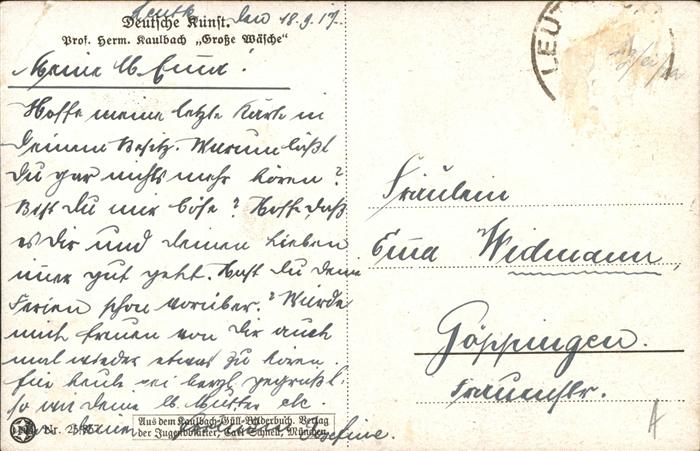 Leutk. den 18.9.17.
Deutsche Kunst.
Prof. Herm. Kaulbach „Große Wäsche“
Meine lb. Emma!
Hoffe meine letzte Karte in
Deinem Besitz. Warum läßt
Du gar nichts mehr hören?
Bist Du mir böse? Hoffe daß
es Dir und deinen Lieben
gut geht. Hast Du deine
Ferien schon vorüber? Würde
mich freuen von Dir auch
mal wieder etwas zu hören.
Für heute sei herzl. gegrüßt,
so wie deine lb. Mutter etc.
von Deiner
Josefine.
Aus dem Kaulbach-Güll-Bilderbuch. Verlag
der Jugendblätter, Carl Schnell, München.
Nr.
LEUT
Fräulein
Emma Widmann,
Göppingen.
Frauenstr.